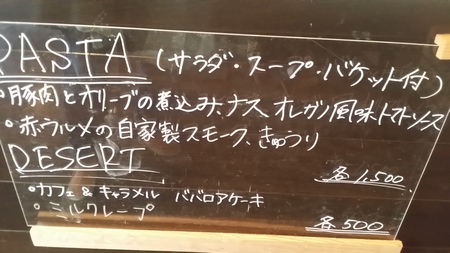 PASTA (サラダ・スープ・バケット付)
・豚肉とオリーブの煮込み、ナス オレガノ風味トマトソース
・赤ウルメの自家製スモーク、きゅうり
各1,500
DESERT
・カフェ & キャラメル ババロアケーキ
・ミルクレープ
各500